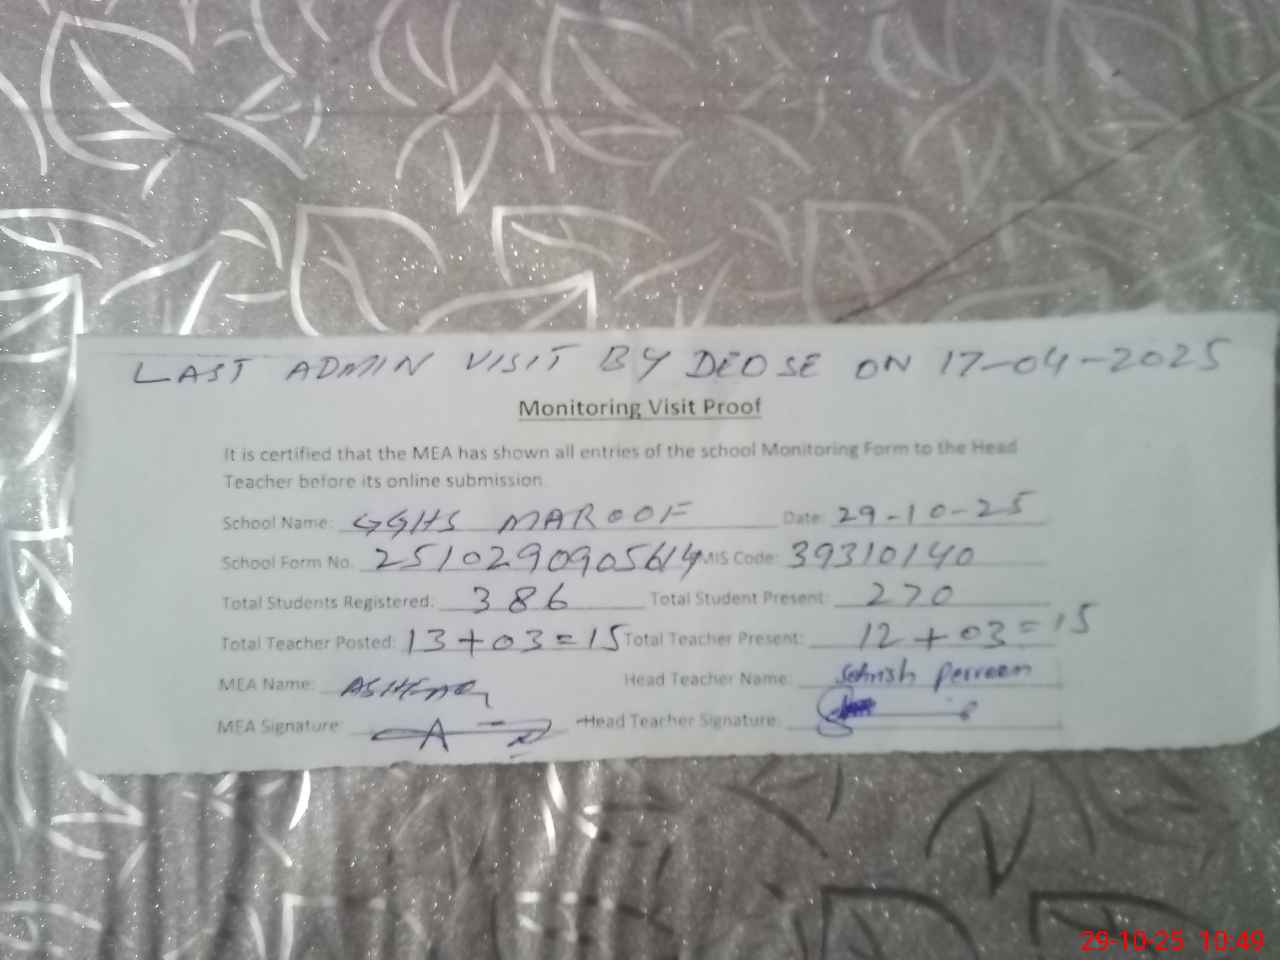 LAST ADMIN VISIT BY DEOSE ON 17-04-2025
Monitoring Visit Proof
It is certified that the MEA has shown all entries of the school Monitoring Form to the Head
Teacher before its online submission.
School Name: GGHS MAROOF Date: 29-10-25
School Form No. 2510290905614 EMIS Code: 39310140
Total Students Registered: 386 Total Student Present: 270
Total Teacher Posted: 13+03=15 Total Teacher Present: 12+03=15
MEA Name: Head Teacher Name: Sehrish Perveen
MEA Signature: Head Teacher Signature:
29-10-25 10:49